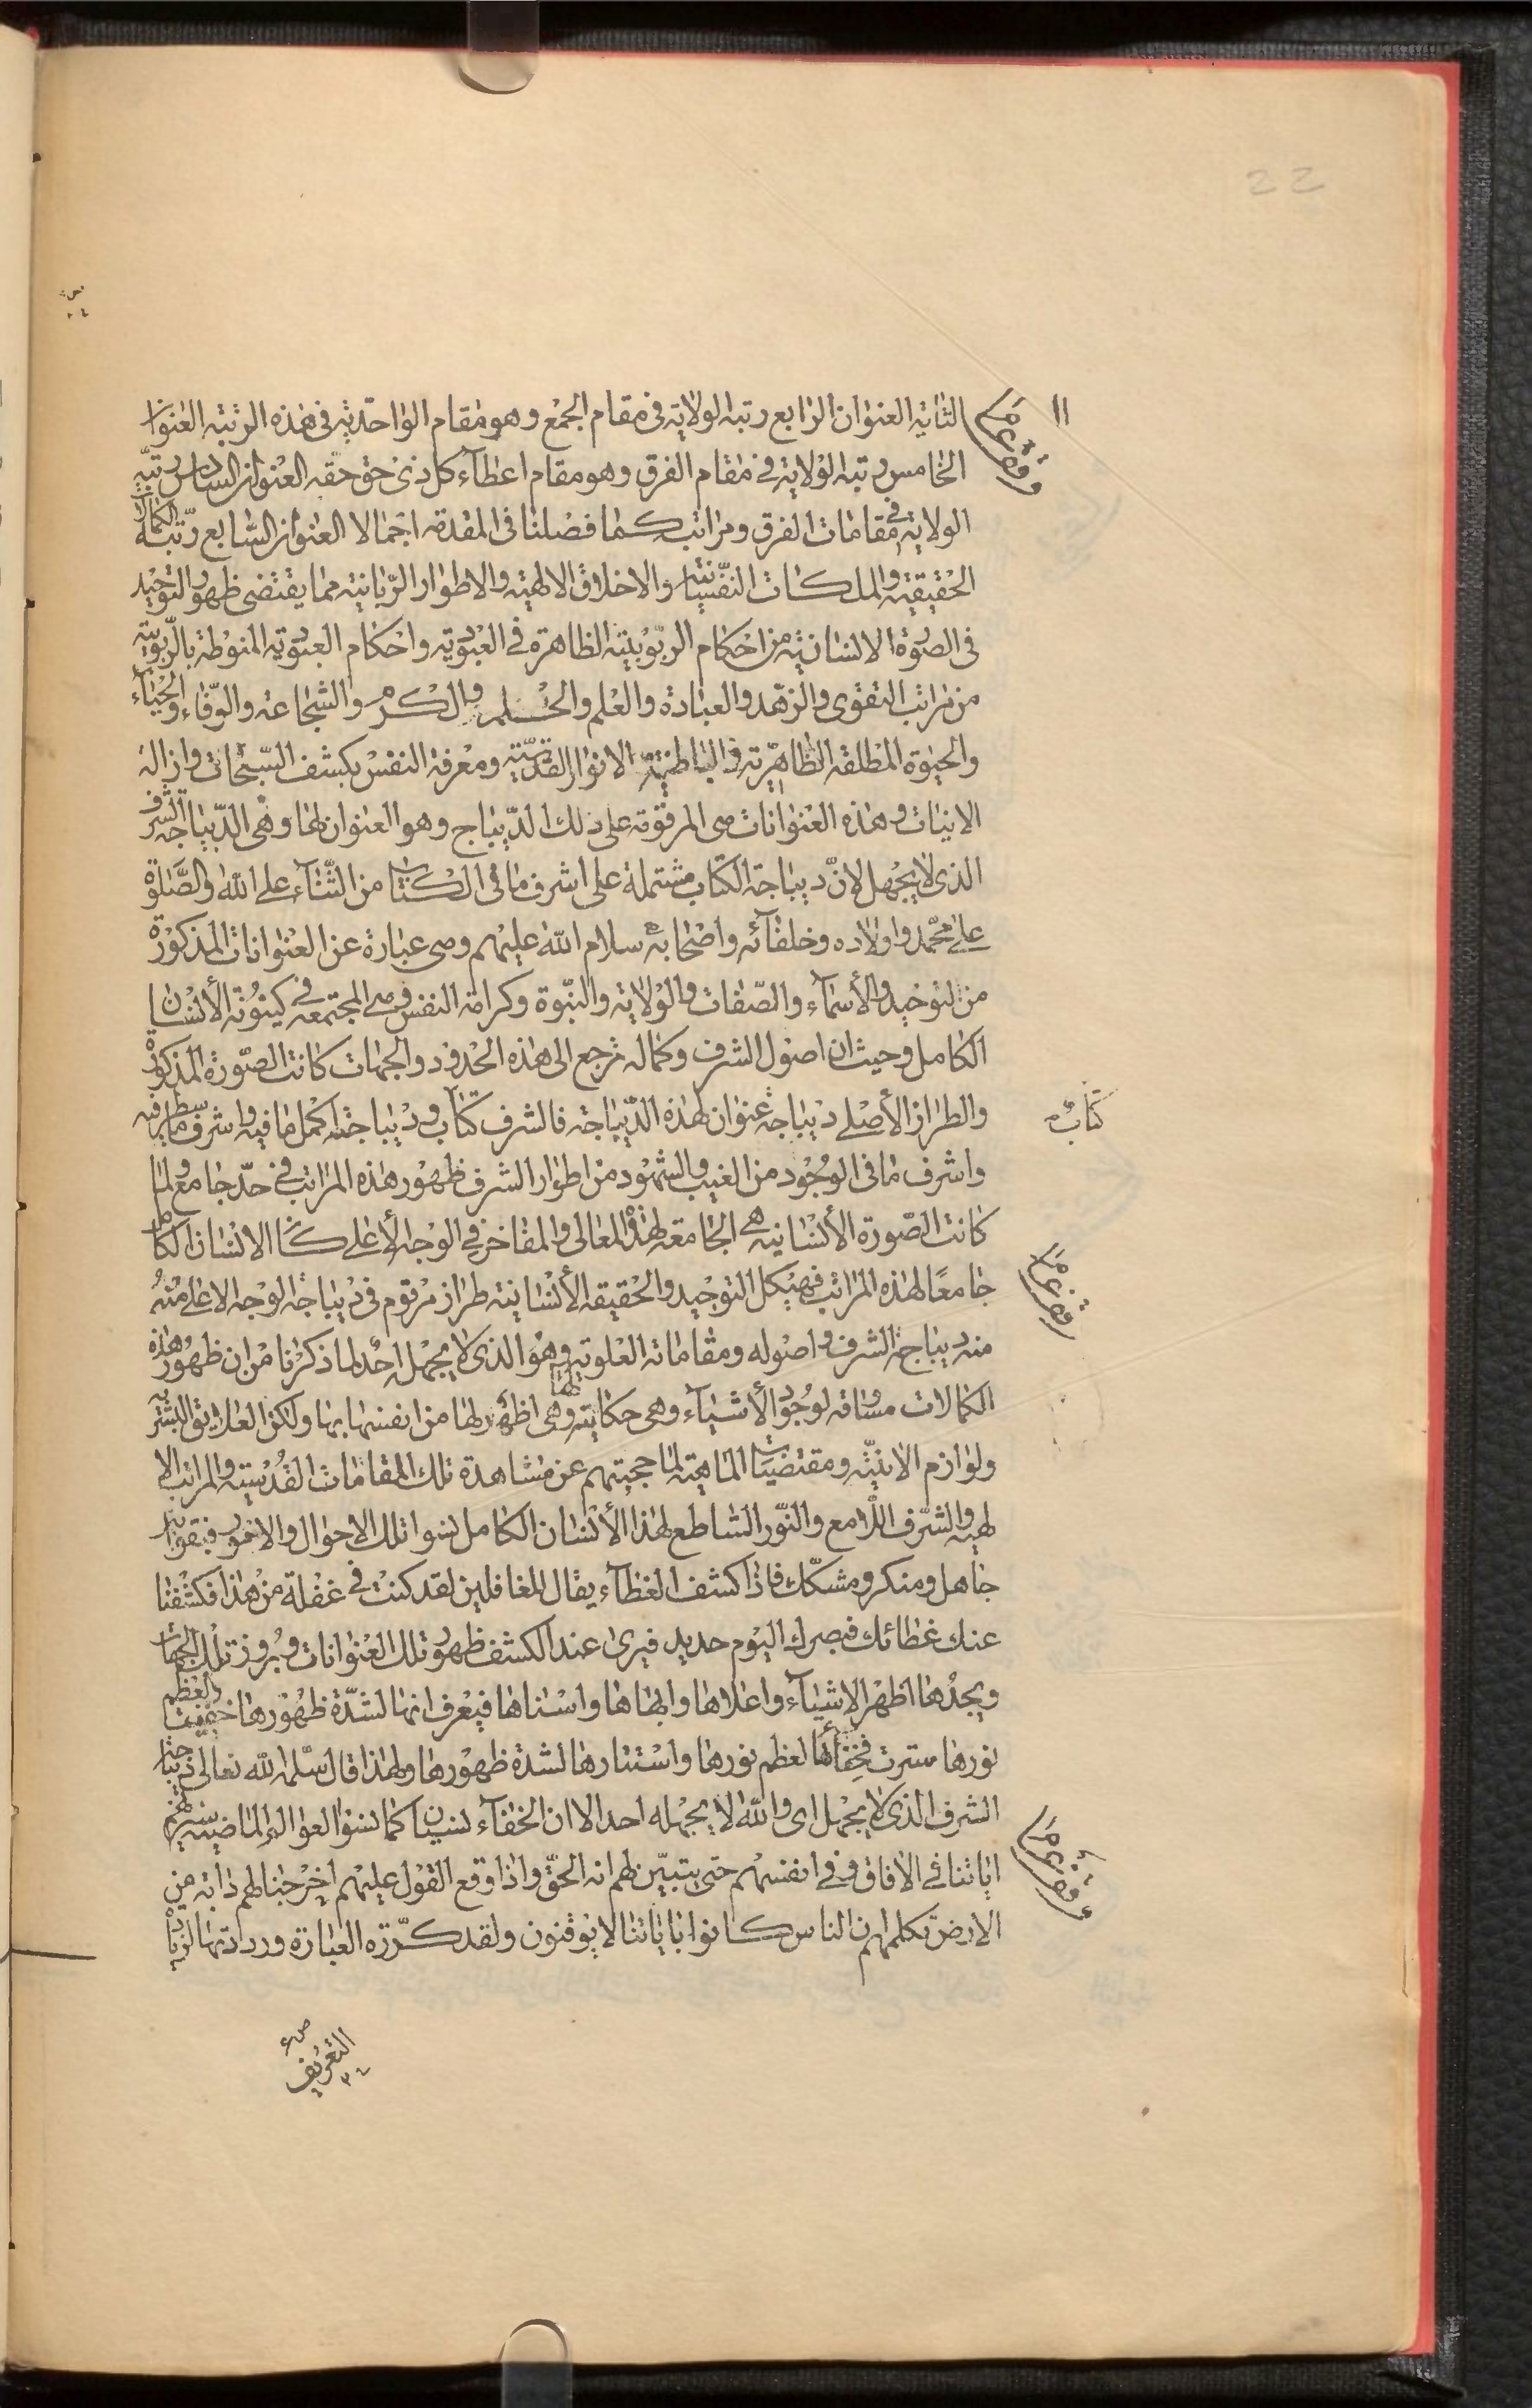 22
١١
الثانية العنوان الرابع رتبة الولاية فى مقام الجمع وهو مقام الواحدية فى هذه الرتبة العنوان
الخامس رتبة الولاية فى مقام الفرق وهو مقام اعطآء كل ذى حق حقه العنوان السادس رتبة
الولاية فى مقامات الفرق ومراتب كما فصلنا فى المقدمة اجمالا العنوان السابع رتبة الكمالات
الحقيقية والملكات النفسانية والاخلاق الالهية والاطوار الربانية مما يقتضى ظهور التوحيد
فى الصورة الانسانية من احكام الربوبية الظاهرة فى العبودية واحكام العبودية المنوطة بالربوبية
من مراتب التقوى والزهد والعبادة والعلم والحلم والكرم والشجاعة والوفاء والحيآء
والحيوة المطلقة الظاهرية والباطنية الانوار القدسية ومعرفة النفس بكشف السبحات وازالة
الانيات وهذه العنوانات هى المرقومة على ذلك الديباج وهو العنوان لها وهى الديباجة الشرف
الذى لا يجهل لان ديباجة الكتاب مشتملة على اشرف ما فى الكتاب من الثنآء على الله والصلوة
على محمد واولاده وخلفآئه واصحابه سلام الله عليهم وهى عبارة عن العنوانات المذكورة
من التوحيد والأسمآء والصفات والولاية والنبوة وكرامة النفس وهى المجتمعة فى كينونة الأنسان
الكامل وحيث ان اصول الشرف وكماله ترجع الى هذه الحدود والجهات كانت الصورة المذكورة
والطراز الأصلى ديباجة عنوان لهذه الديباجة فالشرف كتاب وديباجته اكمل ما فيه واشرف ما سطر فيه
كتاب
واشرف ما فى الوجود من الغيب والشهود من اطوار الشرف ظهور هذه المراتب فى حد جامع ولما
كانت الصورة الأنسانية هى الجامعة لهذه المعالى والمفاخر فى الوجه الأعلى كان الانسان الكامل
جامعًا لهذه المراتب فهيكل التوحيد والحقيقة الأنسانية طراز مرقوم فى ديباجة الوجه الاعلى
منه ديباجة الشرف واصوله ومقاماته العلوية وهو الذى لا يجهل احد لما ذكرنا من ان ظهور هذه
الكمالات مساوقة لوجود الأشيآء وهى حكاية لها وهى اظهر لها من انفسها بها ولكن العلايق البشرية
ولوازم الانية ومقتضيات الماهية لما حجبتهم عن مشاهدة تلك المقامات القدسية والمراتب الا
لهية والشرف اللامع والنور الساطع لهذا الأنسان الكامل نسوا تلك الاحوال والامور فبقوا بين
جاهل ومنكر ومشكك فاذا كشف الغطآء يقال للغافلين لقد كنت فى غفلة من هذا فكشفنا
عنك غطائك فبصرك اليوم حديد فيرى عند الكشف ظهور تلك العنوانات وبروز تلك الجهات
ويجدها اظهر الاشيآء واعلاها وابهاها واسناها فيعرف انها لشدة ظهورها خفيت ولعظم
نورها سترت فخفآئها لعظم نورها واستتارها لشدة ظهورها ولهذا قال سلمه الله تعالى ديباجة
الشرف الذى لا يجهل اى والله لا يجهله احد الا ان الخفآء نسيان كما نسوا العوالم الماضية سنريهم
اياتنا فى الافاق وفى انفسهم حتى يتبين لهم انه الحق واذا وقع القول عليهم اخرجنا لهم دابة من
الارض تكلمهم ان الناس كانوا باياتنا لا يوقنون ولقد كررت العبارة ورددتها لزيادة
التعريف